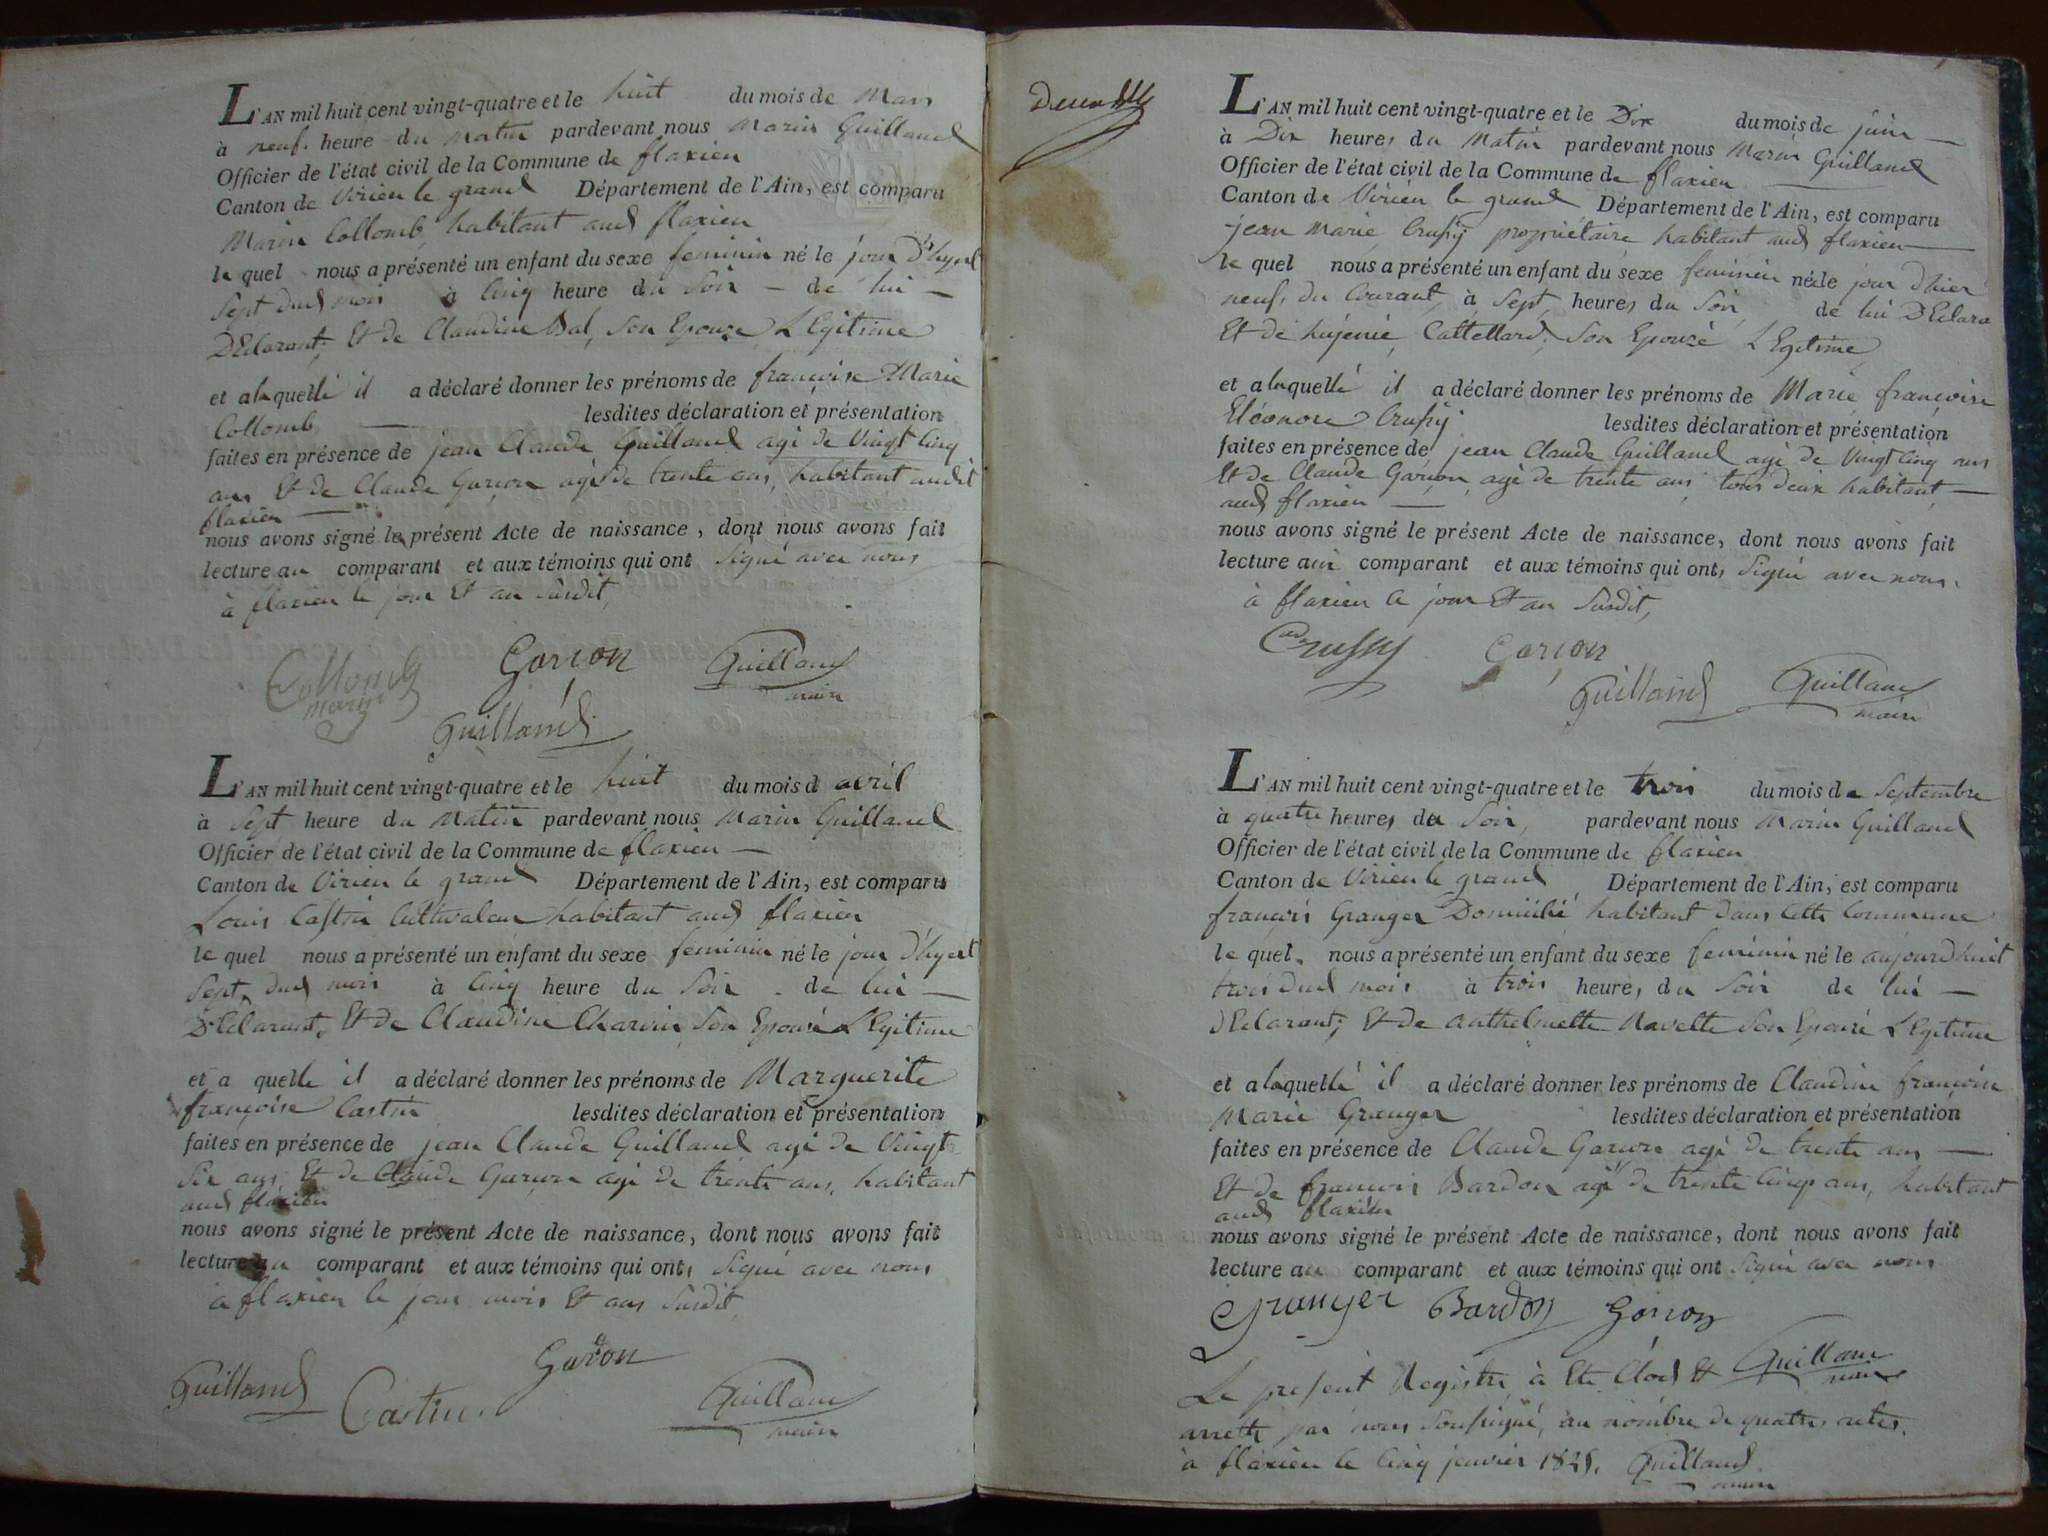 L'AN mil huit cent vingt-quatre et le huit du mois de Mars
à neuf heure du matin pardevant nous Marin Guilland
Officier de l'état civil de la Commune de flaxieu
Canton de Virieu le grand Département de l'Ain, est comparu
Marin Collomb habitant aud flaxieu
le quel nous a présenté un enfant du sexe feminin né le jour d'hyert
Sept dud mois à Cinq heure du Soir - de lui -
DEclarant, Et de Claudine Bal, Son Epouse LEgitime
et a laquelle il a déclaré donner les prénoms de françoise Marie
Collomb lesdites déclaration et présentation
faites en présence de jean Claude Guilland agé de Vingt Cinq
ans Et de Claude Garçon agé de trente ans, habitant audit
flaxieu
nous avons signé le présent Acte de naissance, dont nous avons fait
lecture au comparant et aux témoins qui ont Signé avec nous
à flaxieu le jour Et an Susdit,
Collomb Garçon Guilland
Marin maire
Guilland
L'AN mil huit cent vingt-quatre et le huit du mois d avril
à Sept heure du Matin pardevant nous Marin Guilland
Officier de l'état civil de la Commune de flaxieu
Canton de Virieu le grand Département de l'Ain, est comparu
Louis Castin Cultivateur habitant aud flaxieu
le quel nous a présenté un enfant du sexe feminin né le jour d'hyert
Sept dud mois à Cinq heure du Soir - de lui -
DEclarant, Et de Claudine Charvin Son Epouse LEgitime
et a quelle il a déclaré donner les prénoms de Marguerite
françoise Castin lesdites déclaration et présentation
faites en présence de jean Claude Guilland agé de Vingt
Six ans, Et de Claude Garçon agé de trente ans, habitant
aud flaxieu
nous avons signé le présent Acte de naissance, dont nous avons fait
lecture au comparant et aux témoins qui ont Signé avec nous
à flaxieu le jour mois Et ans Susdit
Guilland Castin Garçon Guilland
maire
L'AN mil huit cent vingt-quatre et le Dix du mois de juin
à Dix heures du Matin pardevant nous Marin Guilland
Officier de l'état civil de la Commune de flaxieu
Canton de Virieu le grand Département de l'Ain, est comparu
jean Marie Crussy propriétaire habitant aud flaxieu
le quel nous a présenté un enfant du sexe feminin né le jour d'hier
neuf du Courant à Sept heures du Soir, de lui DEclara
Et de hujenie Cattellard, Son Epouse LEgitime
et a laquelle il a déclaré donner les prénoms de Marie françoise
Eléonore Crussy lesdites déclaration et présentation
faites en présence de jean Claude Guilland agé de Vingt Cinq ans
Et de Claude Garçon agé de trente ans, tous deux habitant
aud flaxieu
nous avons signé le présent Acte de naissance, dont nous avons fait
lecture aux comparant et aux témoins qui ont, Signé avec nous.
à flaxieu le jour Et an Susdit,
Crussy Garçon
Guilland Guilland
maire
L'AN mil huit cent vingt-quatre et le trois du mois de Septembre
à quatre heures du Soir, pardevant nous Marin Guilland
Officier de l'état civil de la Commune de flaxieu
Canton de Virieu le grand Département de l'Ain, est comparu
françois Granger Domicilié habitant dans Cette Commune
le quel nous a présenté un enfant du sexe feminin né le aujourdhuit
trois dud mois à trois heures, du Soir de lui -
dEclarant, Et de Anthelmette Navette Son Epouse LEgitime
et a laquelle il a déclaré donner les prénoms de Claudine françoise
Marie Granger lesdites déclaration et présentation
faites en présence de Claude Garçon agé de trente ans
Et de françois Bardon agé de trente Cinq ans, habitant
aud flaxieu
nous avons signé le présent Acte de naissance, dont nous avons fait
lecture au comparant et aux témoins qui ont Signé avec nous
Granger Bardon Garçon
Guilland
maire
Le present Registre à Eté Clos Et
arretté par nous Soussigné, au nombre de quatre actes.
à flaxieu le Cinq janvier 1825. Guilland
maire